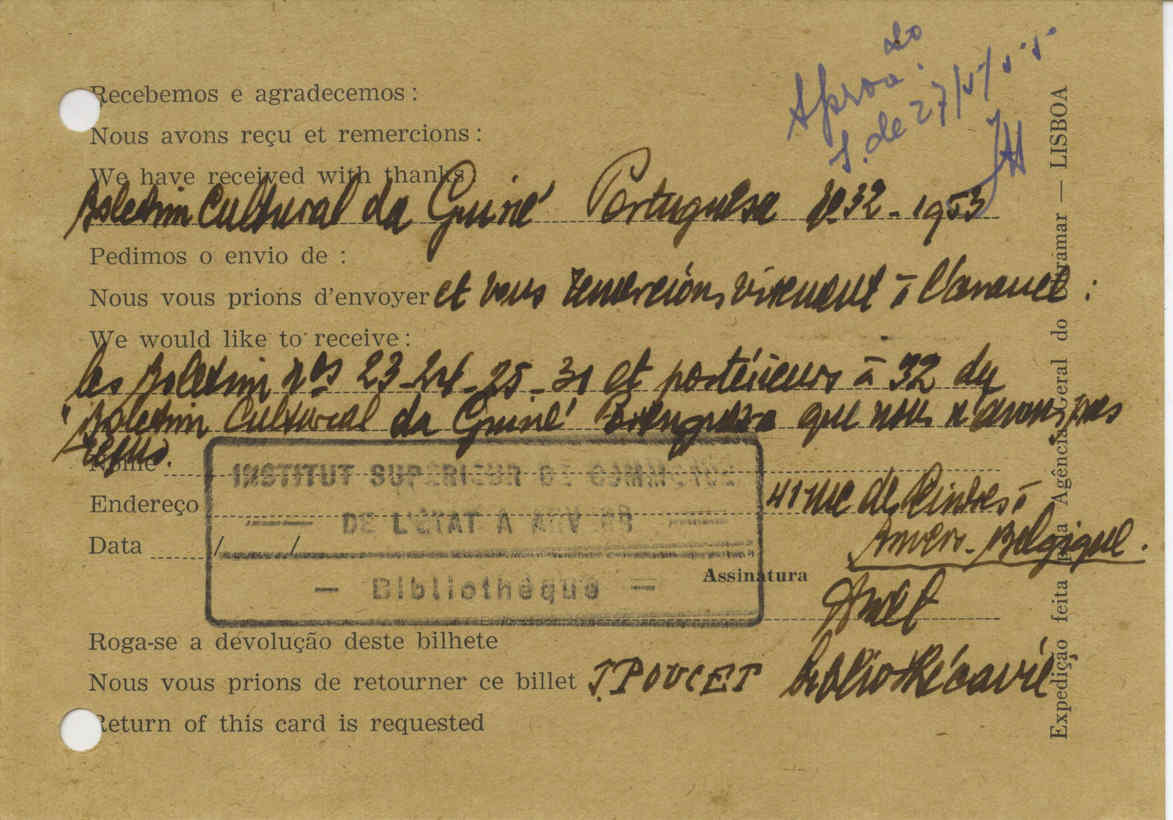 Recebemos e agradecemos :
Nous avons reçu et remercions :
We have received with thanks
Boletim Cultural da Guiné Portuguesa nº 32 - 1953
Pedimos o envio de :
Nous vous prions d'envoyer et vous remercions vivement à l'avance :
We would like to receive :
les Boletim nos 23-24-25-31 et postérieurs à 32 du
"Boletim Cultural da Guiné" Portuguesa que nous n'avons pas
reçus.
Nome
Endereço
Data / /
INSTITUT SUPÉRIEUR DE COMMERCE
DE L'ÉTAT A ANVERS
— Bibliothèque —
41 rue de
Anvers. Belgique.
Assinatura
Roga-se a devolução deste bilhete
Nous vous prions de retourner ce billet J. POUCET bibliothécaire
Return of this card is requested
27/5/55
Expedição feita pela Agência Geral do Ultramar — LISBOA